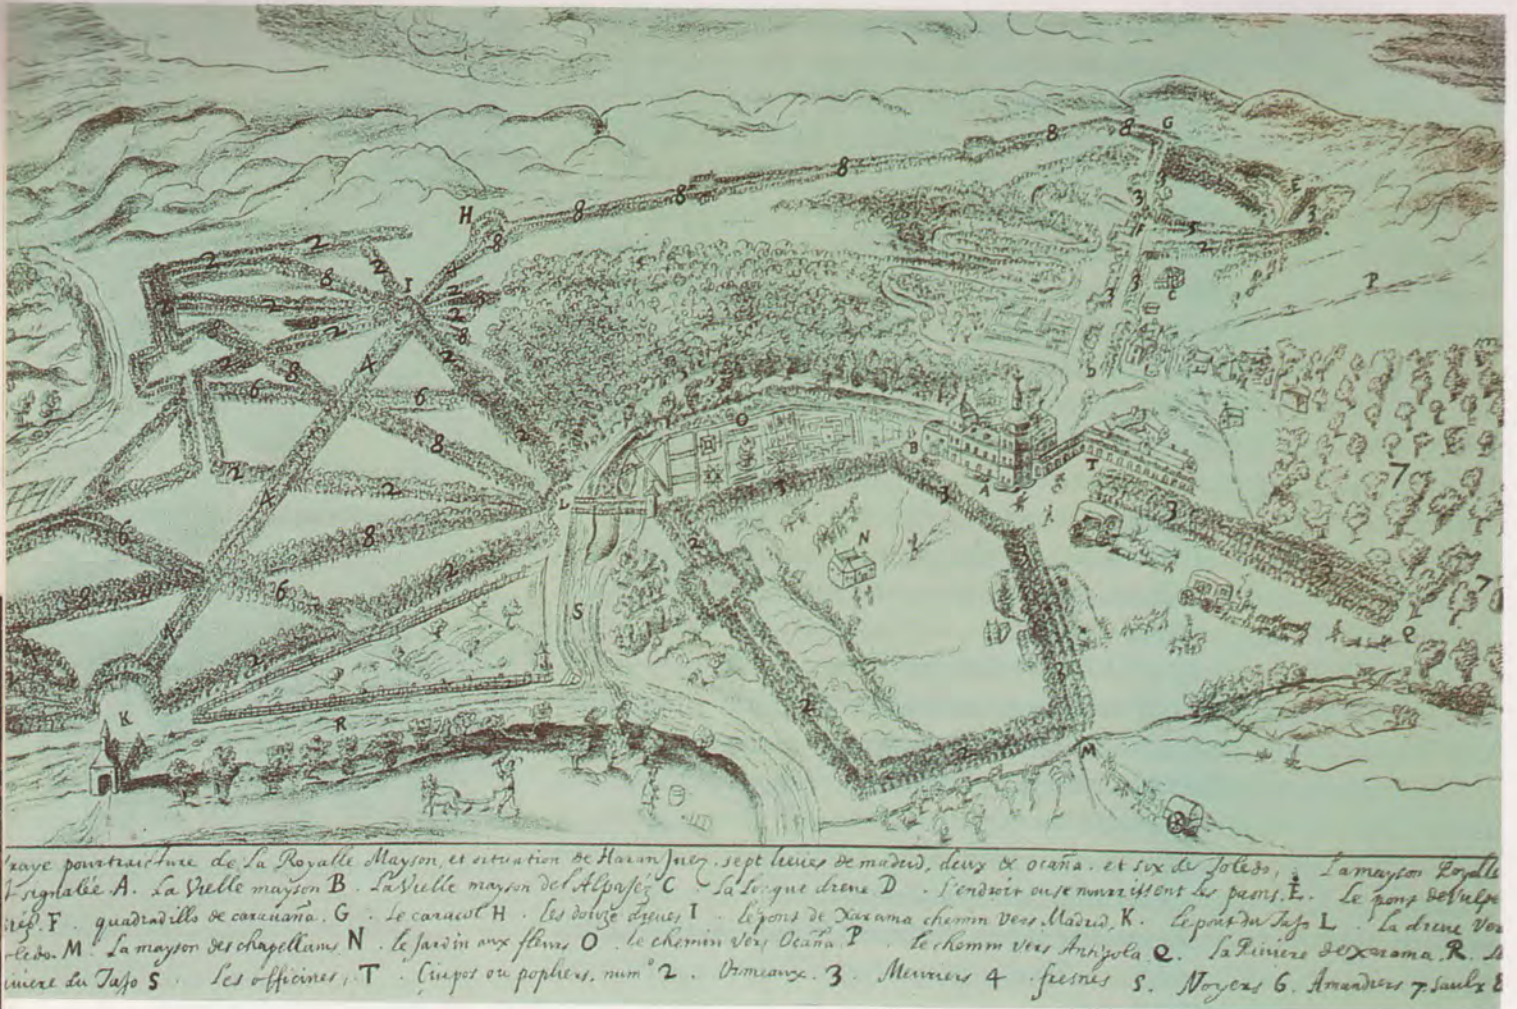 raye pourtraicture de La Royalle Mayson, et situation de Haran Juez. sept lieues de madrid, deux de ocaña. et six de Toledo, La mayson Royalle
signalée A. La Vielle mayson B. La Vielle mayson del Alpajéz C La longue dreue D. L'endroit ou se nourrissent les paons. E. Le pons de Vulpe
F. quadradillo de carauaña. G. Le caracol H. Les douze dreues I. le pons de Xarama chemin vers Madrid, K. le pont du Tajo L. La dreue Ver
ledo. M. La mayson des chapellains N. le Jardin aux fleurs O. le chemin vers Ocaña. P le chemin vers Antigola. Q. La Riuiere de Xarama. R.
iuiere du Tajo S. Les officines, T. Ciupos ou popliers. num° 2. Ormeaux. 3. Meuriers 4 fresnes 5. Noyers 6. Amandiers 7. Saulx 8